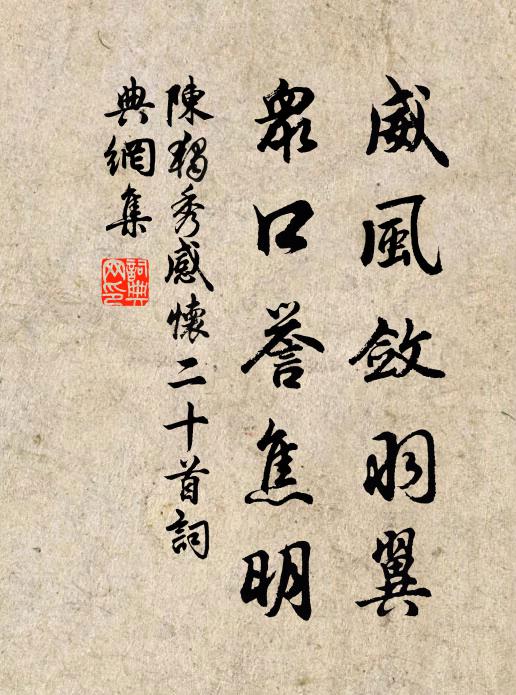 威風斂羽翼
衆口譽焦明
陳獨秀感懷二十首詞
典網集
詞典網印